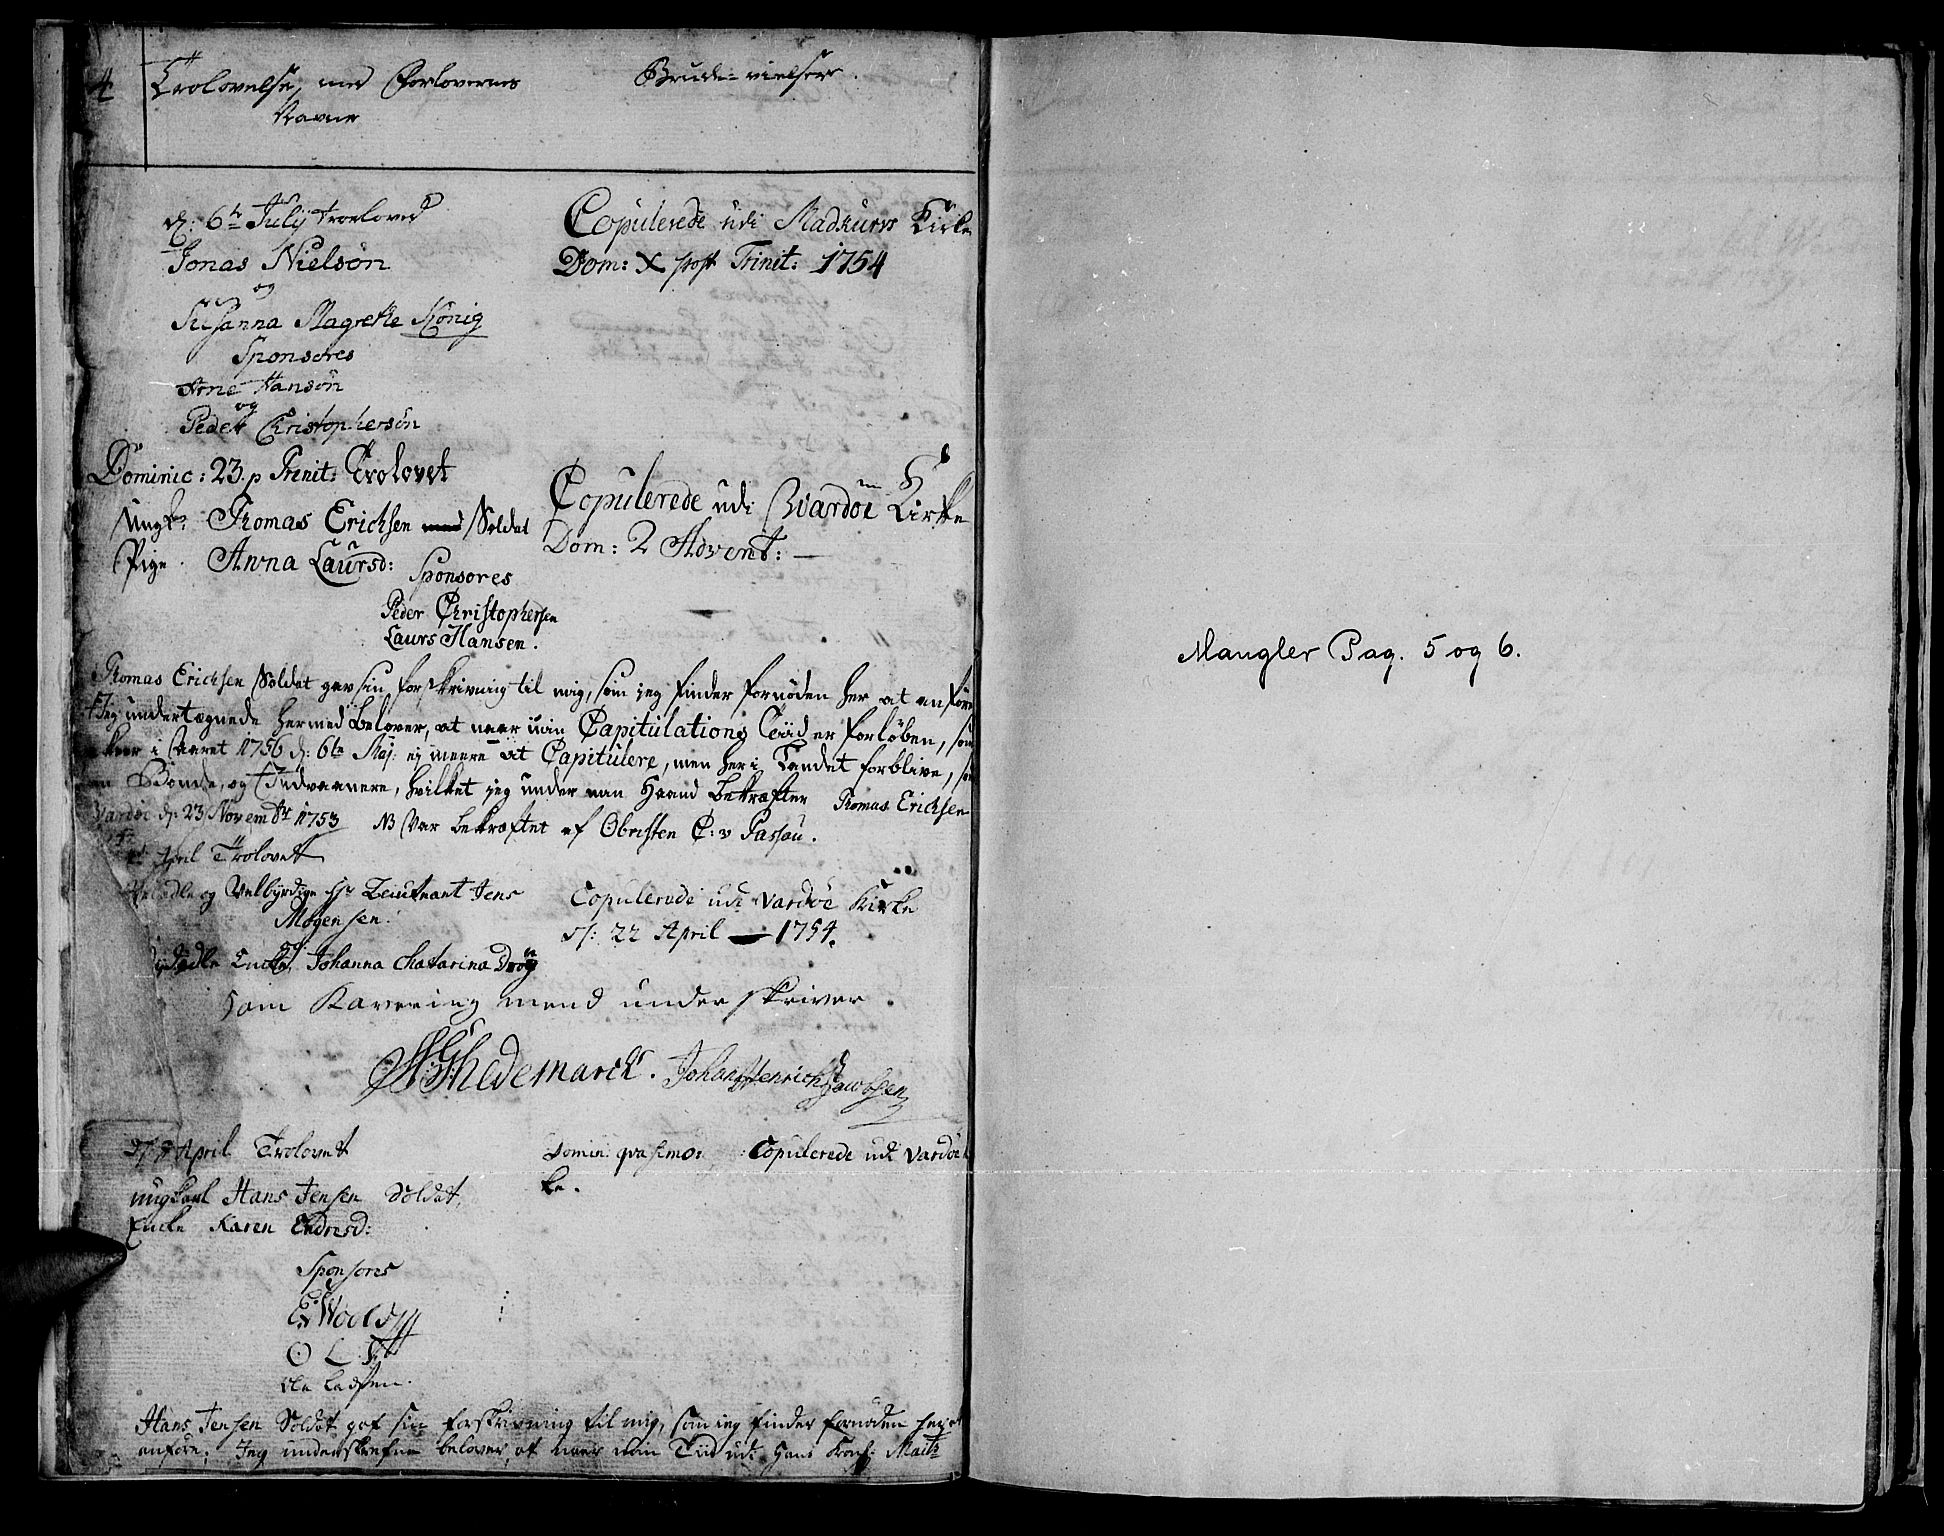 4
Trolovelse, med Forlovernes
Navne
Brude-vielser.
d: 6te Julij Troeloved
Jonas Nielsøn
og
Susanna Magrethe König
Sponsores
Arne Hansøn
og
Peder Christophersøn
Copulerede udi Madkurrs Kirke
Dom: X post Trinit: 1754
Dominic: 23. p Trinit: Trolovet
Ungk: Thomas Erichsen Soldat
Pige. Anna Laursd:
Sponsores
Peder Christophersen
Laurs Hansen.
Copulerede udi Wardøe Kirke
Dom: 2 Advent: —
Thomas Erichsen Soldat gav sin forskrivning til mig, som jeg finder fornøden her at anføre
Jeg undertegnede hermed belover, at naar min Capitulations Tiid er forløben, som
skeer i Aaret 1756 d: 6te Maj: ej meere at Capitulere, men her i Landet forblive, som
en Bonde, og Indvaanere, hvilket jeg under min Haand bekræfter Thomas Erichsen
Vardøe d: 23 Novembr 1753 NB Var bekræftet af Obristen C: v Passau.
April Trolovet
Velædle og Velbyrdige Hr Lieutenant Jens
Mogensen.
og
Dydædle Enke Johanna Chatarina
Copulerede udi Vardøe Kirke
d: 22 April — 1754.
som Kaveering mend under skriver.
Hedemarck. Johan Henrich Jacobsen
d: April Trolovet
ungkarl Hans Jensen Soldat,
Enke Karen Endresd:
Domin: quasimo: Copulerede udi Vardøe
ke.
Sponsores
O L S
Ole Ladsen.
Hans Jensen Soldat gaf sin forskrivning til mig, som jeg finder fornøden her at
anføre; Jeg underskrefne belover, at naar min Tiid udi Hans Kong: Maits
Mangler Pag. 5 og 6.